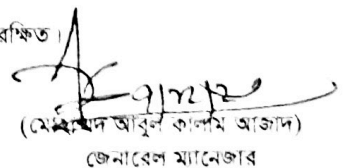 রক্ষিত।
(মোহাম্মদ আবুল কালাম আজাদ)
জেনারেল ম্যানেজার